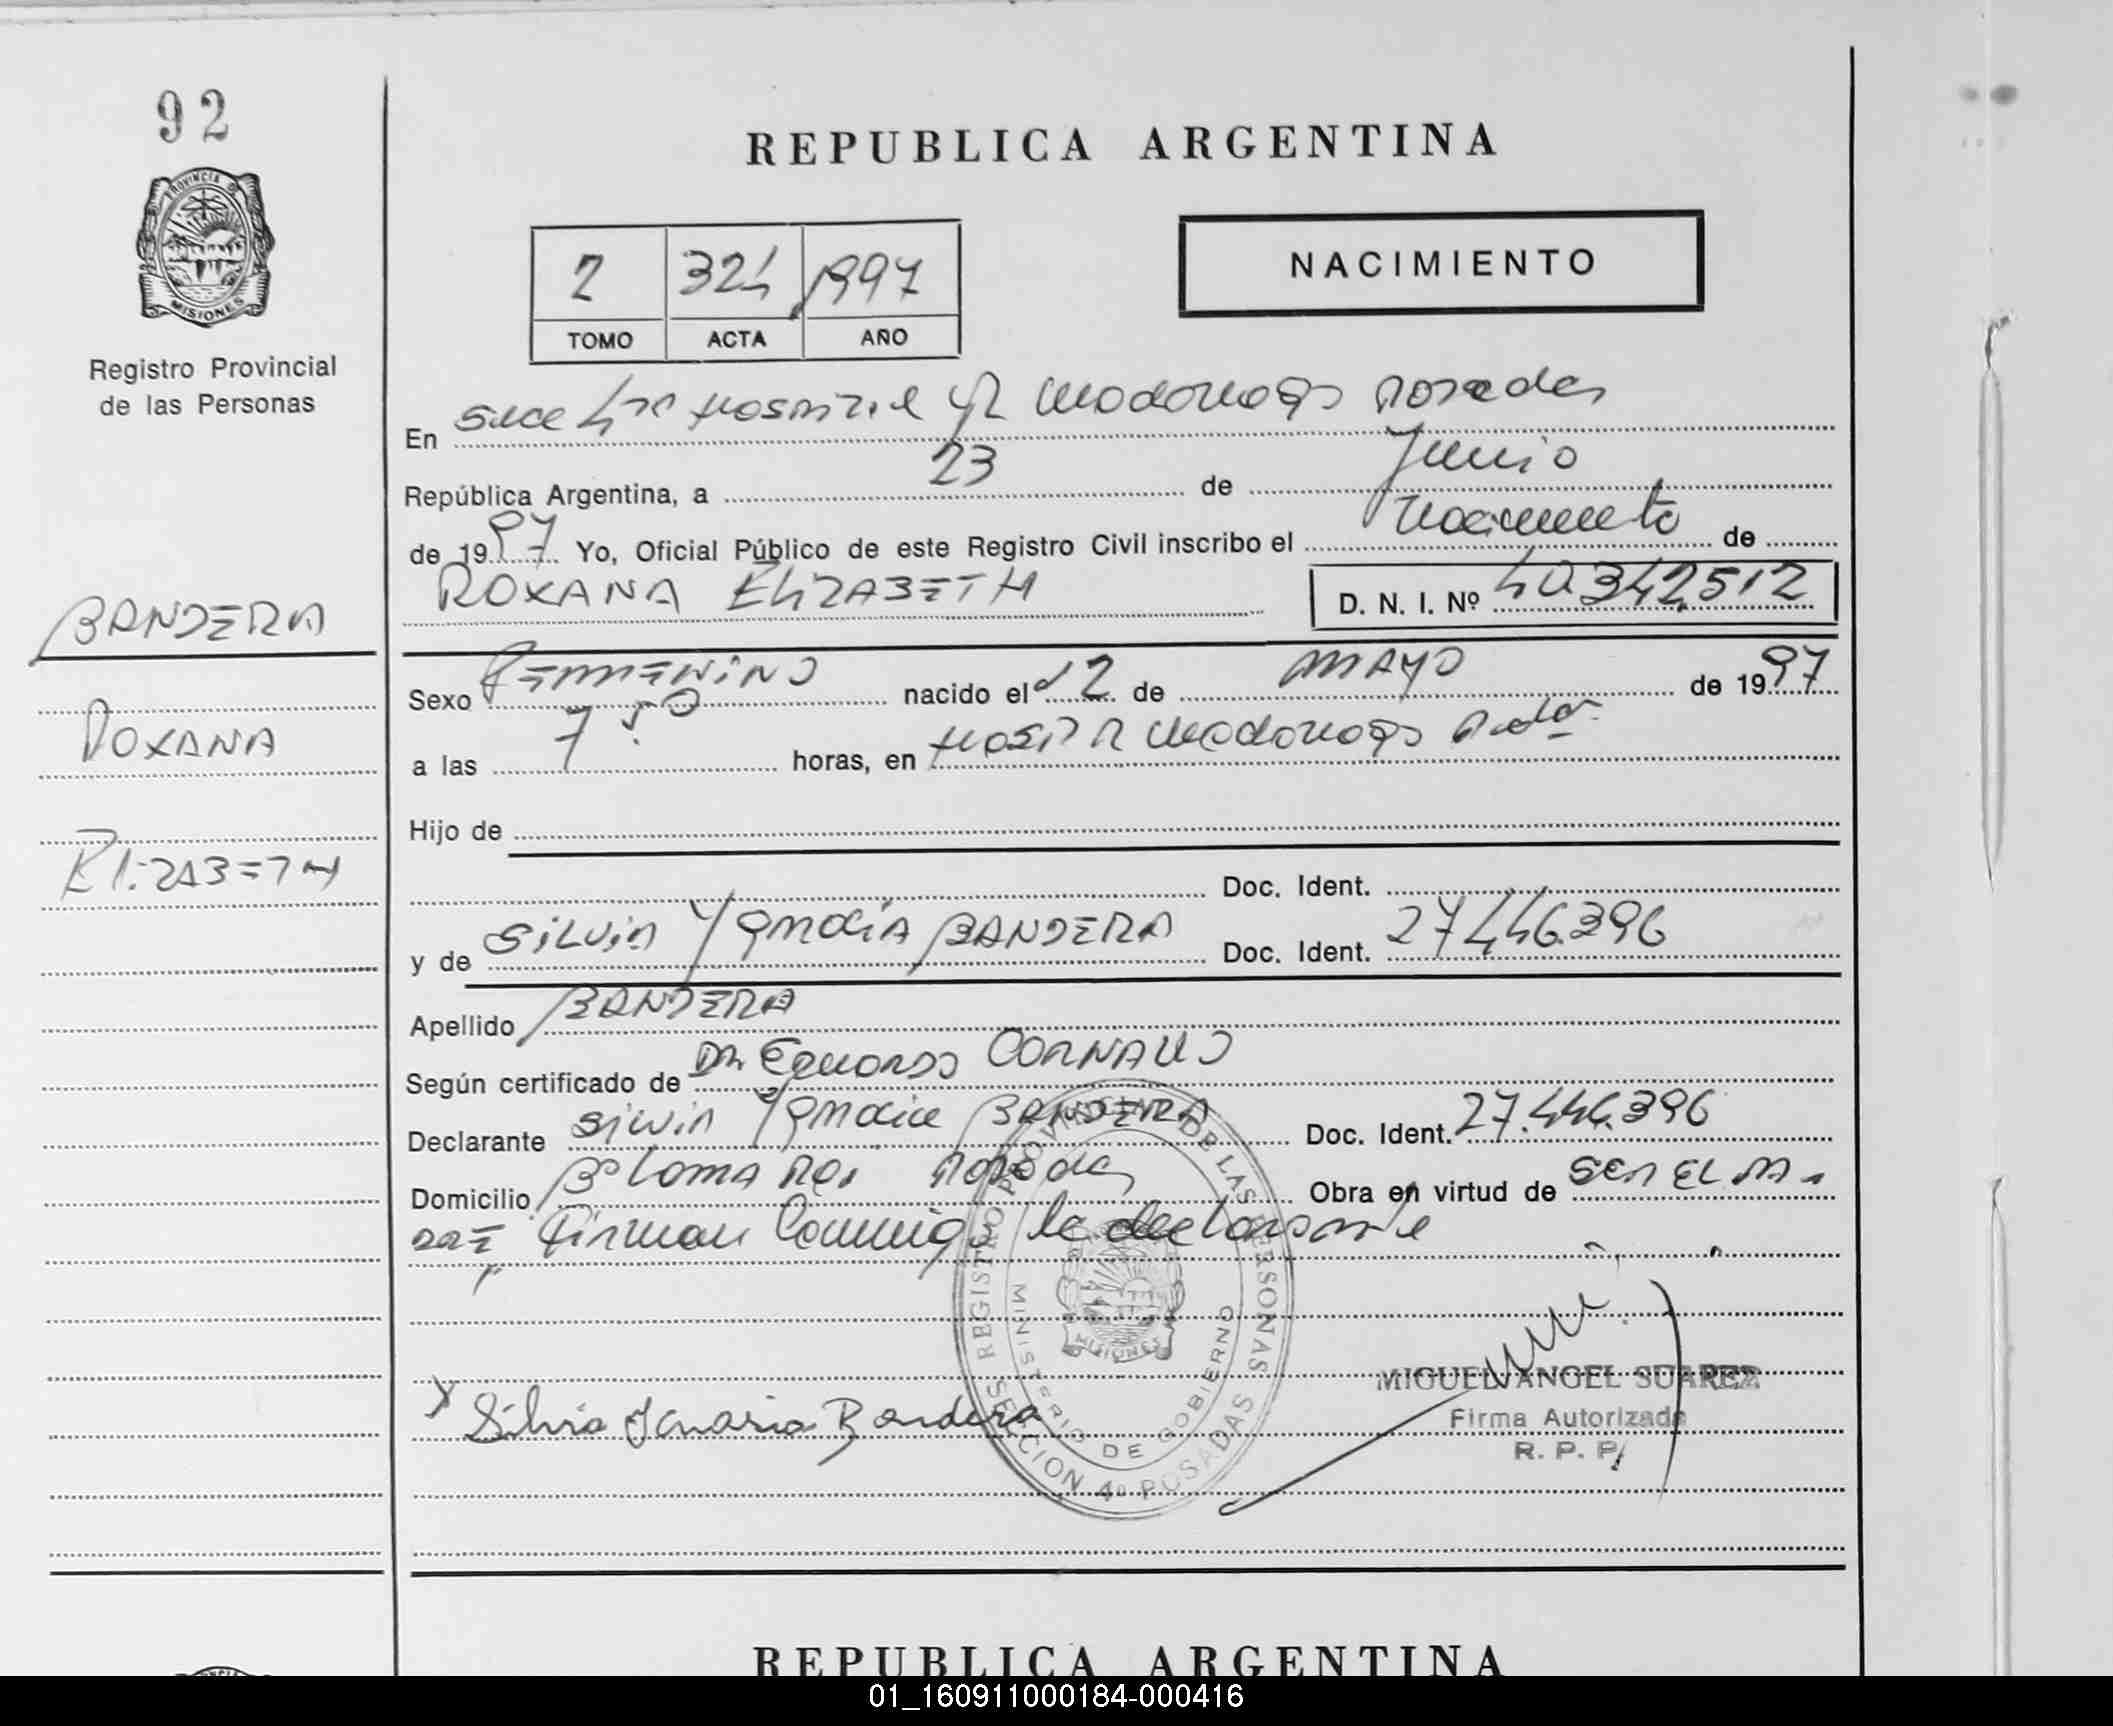 92
PROVINCIA DE
MISIONES
Registro Provincial
de las Personas
BANDERA
ROXANA
Elizabeth
REPUBLICA ARGENTINA
2 324 1997
TOMO ACTA AÑO
NACIMIENTO
En Posadas
República Argentina, a 23 de Junio
de 1997 Yo, Oficial Público de este Registro Civil inscribo el Nacimiento de
ROXANA ELIZABETH D. N. I. Nº 40.342.512
Sexo FEMMENINO nacido el 12 de MAYO de 1997
a las 7 horas, en Hosp R Madariaga Pdas
Hijo de
Doc. Ident.
y de SILVIA YGNACIA BANDERA Doc. Ident. 27.446.396
Apellido BANDERA
Según certificado de Dr. Eduardo CORNALO
Declarante Silvia Ygnacia BANDERA Doc. Ident. 27.446.396
Domicilio Bº LOMA POI Posadas Obra en virtud de SER EL MA
DRE Firman Conmigo la declarante
X Silvia Ignacia Bandera
REGISTRO PROVINCIAL DE LAS PERSONAS
MINISTERIO DE GOBIERNO
MISIONES
SECCION 4º POSADAS
MIGUEL ANGEL SUAREZ
Firma Autorizada
R. P. P.
REPUBLICA ARGENTINA
01_160911000184-000416